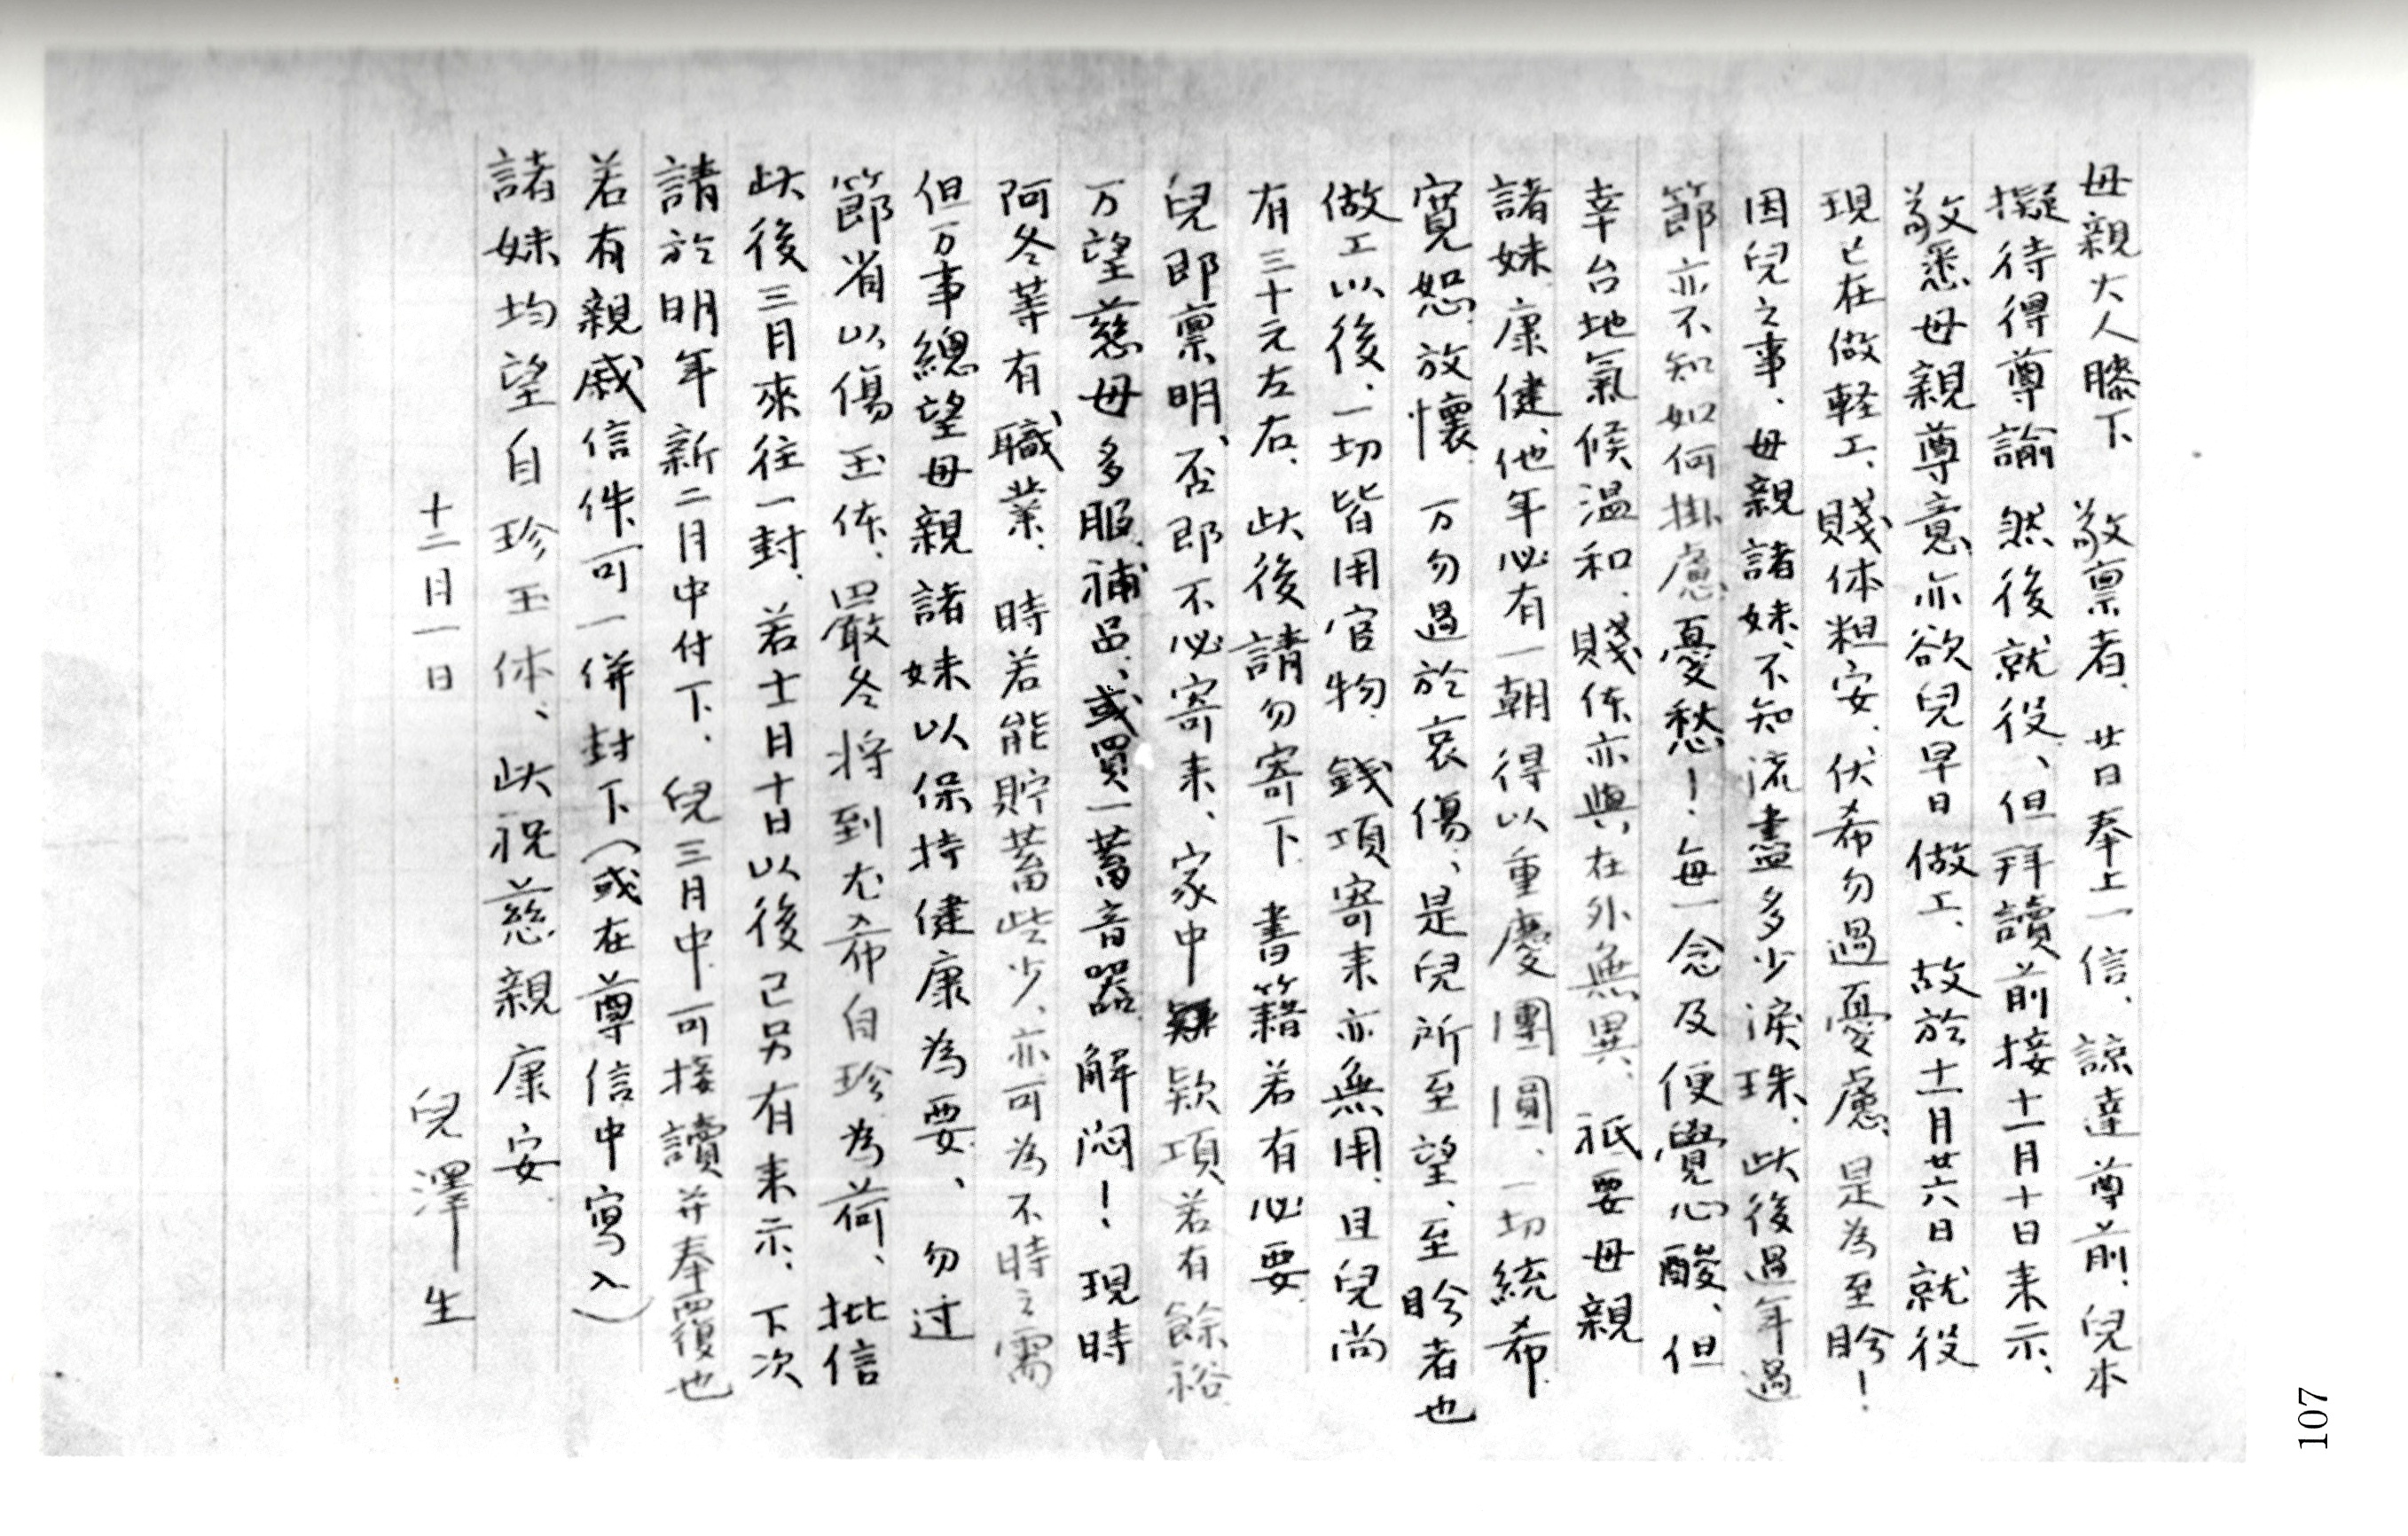 母親大人膝下　敬禀者、廿日奉上一信、諒達尊前、兒本
擬待得尊諭　然後就役、但拜讀前接十一月十日来示、
敬悉母親尊意亦欲兒早日做工、故於十一月廿六日就役
現已在做軽工、賤体粗安、伏希勿過憂慮、是為至盼！
因兒之事、母親諸妹、不知流盡多少淚珠、此後過年過
節亦不知如何掛慮憂愁！每一念及便覺心酸、但
幸台地氣候溫和、賤体亦與在外無異、祇要母親
諸妹康健、他年必有一朝得以重慶團圓、一切統希
寬恕放懷　万勿過於哀傷、是兒所至望、至盼者也
做工以後、一切皆用官物、錢項寄来亦無用、且兒尚
有三十元左右、此後請勿寄下　書籍若有必要
兒即禀明、否即不必寄来、家中欵項若有餘裕
万望慈母多服補品、或買一蓄音器解悶！現時
阿冬等有職業、時若能貯蓄些少、亦可為不時之需
但万事總望母親諸妹以保持健康為要、勿过
節省以傷玉体、嚴冬将到尤希自珍為荷、批信
此後三月來往一封、若十一月十日以後已另有来示、下次
請於明年新二月中付下、兒三月中可接讀并奉覆也
若有親戚信件可一併封下（或在尊信中寫入）
諸妹均望自珍玉体、此祝慈親康安
十二月一日　兒澤生
107